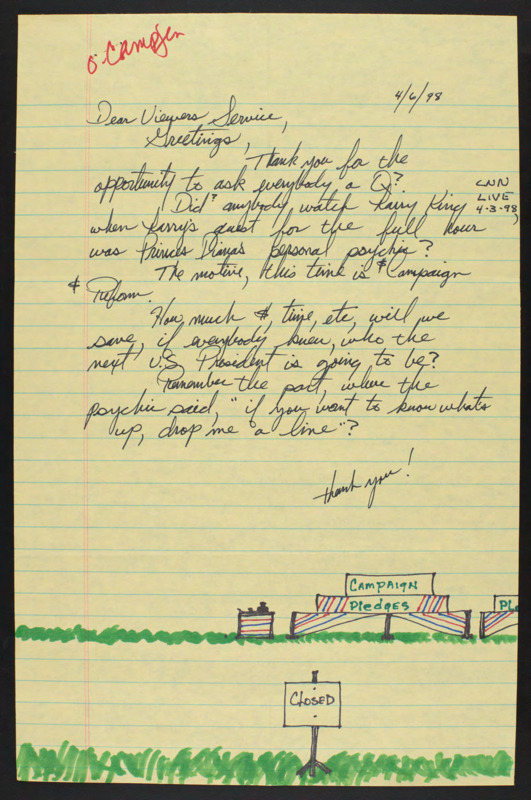 O'Campaign
4/6/98
Dear Viewers Service,
Greetings,
Thank you for the
opportunity to ask everybody, a Q?
Did? anybody, watch Larry King
CNN
LIVE
4-3-98,
when Larry's guest for the full hour
was Princes Diana's personal psychic?
The motive, this time is $ Campaign
$ Reform.
How much $, time, etc, will we
save, if everybody knew, who the
next U.S President is going to be?
Remember the part, where the
psychic said, "if you want to know whats
up, drop me "a line"?
thank you!
CAMPAIGN
Pledges
PL
CLOSED